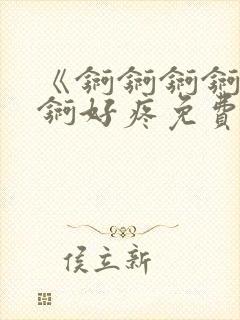 《锕锕锕锕
锕好疼免費
侯立新